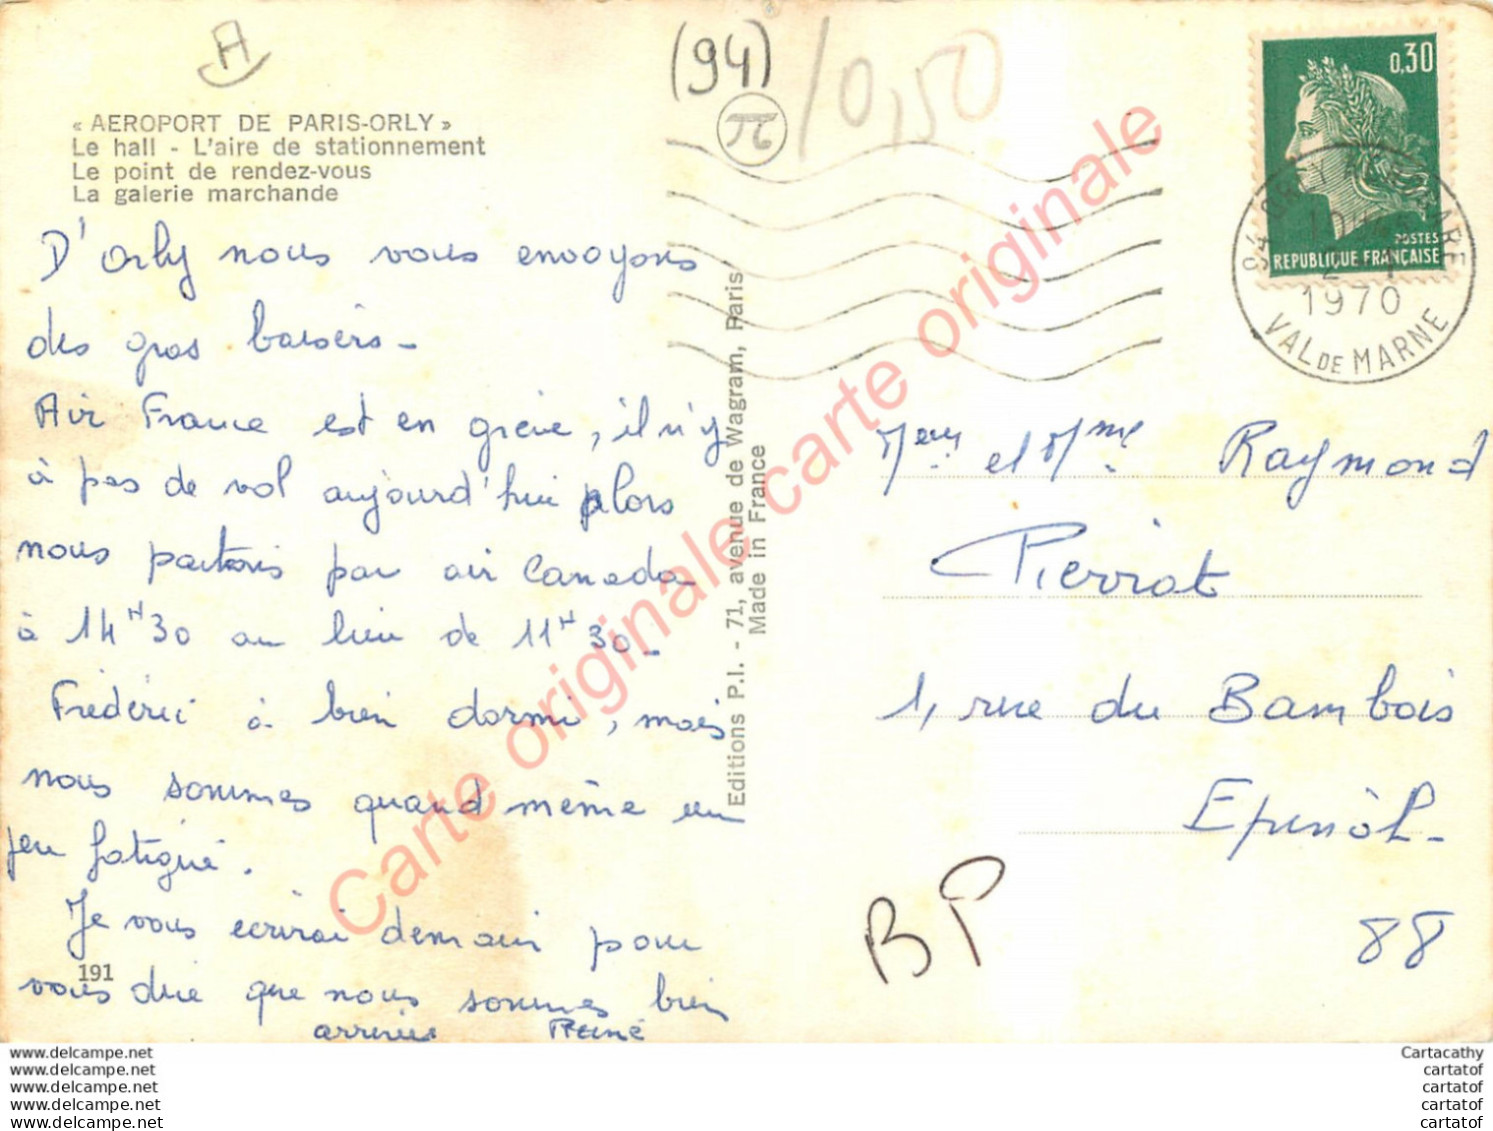 A
(94)
/0,50
« AEROPORT DE PARIS-ORLY »
Le hall - L'aire de stationnement
Le point de rendez-vous
La galerie marchande
D'Orly nous vous envoyons
des gros baisers -
Air France est en grève, il n'y
à pas de vol aujourd'hui alors
nous partons par air Canada
à 14H30 au lieu de 11H30 -
Fréderic à bien dormi, mais
nous sommes quand même un
peu fatigué.
Je vous ecrirai demain pour
vous dire que nous sommes bien
arrivés René
191
Editions P.I. - 71, avenue de Wagram, Paris
Made in France
0,30
POSTES
REPUBLIQUE FRANÇAISE
1970
VAL DE MARNE
et Mme Raymond
Pierrat
1, rue du Bambois
Epinal -
88
BP
Carte originale carte originale carte originale
www.delcampe.net
www.delcampe.net
www.delcampe.net
www.delcampe.net
www.delcampe.net
Cartacathy
cartatof
cartatof
cartatof
cartatof